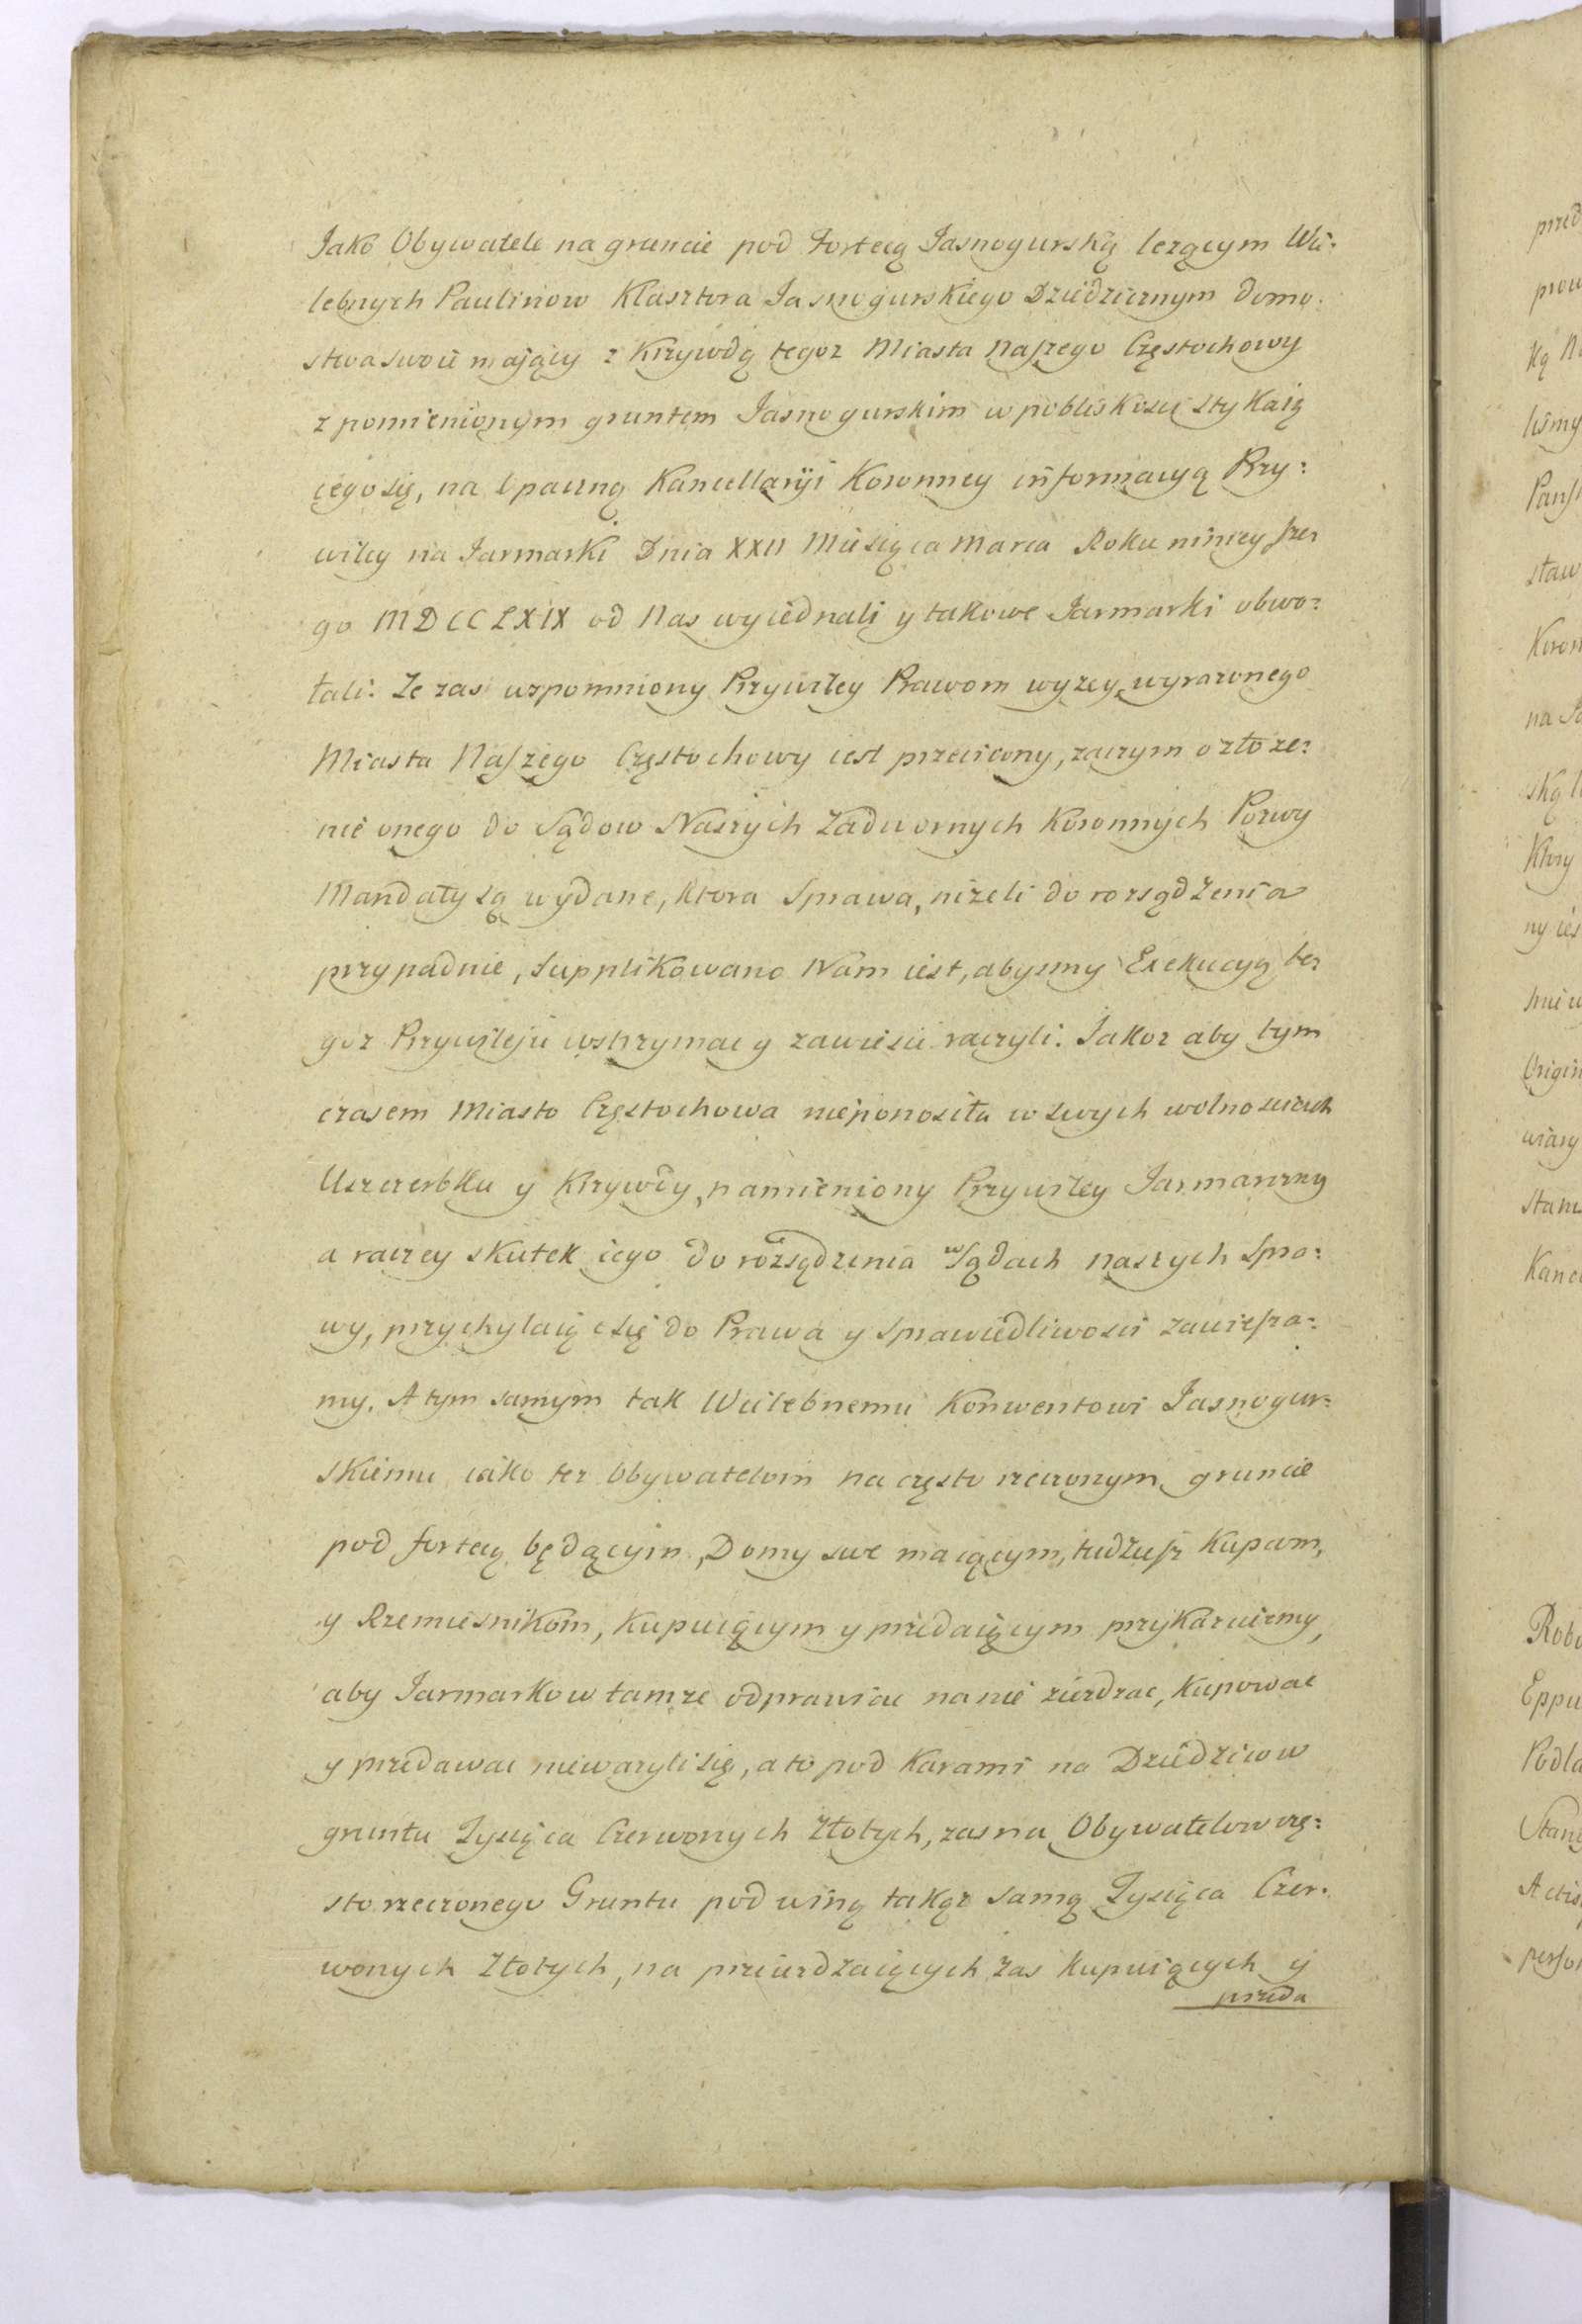 Jako Obywatele na gruncie pod Fortecą Jasnogurską lezącym Wie:
lebnych Paulinow Klasztora Jasnogurskiego Dziedzicznym domo:
stwa swoie maiący z Krzywdą tegoz Miasta Naszego Częstochowy
z pomienionym gruntem Jasnogurskim w pobliskosci stykaią
cego się, na opaczną Kancellaryi Koronney informacyą Przy:
wiley na Jarmarki Dnia XXII Miesiąca Marca Roku ninieysze
go MDCCLXIX od Nas wyiednali y takowe Jarmarki obwo:
łali: Ze zas wspomniony Przywiley Prawom wyzey wyrazonego
Miasta Naszego Częstochowy iest przeciwny, zaczym o złoze:
nie onego do Sądow Naszych Zadwornych Koronnych Pozwy
Mandaty są wydane, ktora Sprawa, nizeli do rozsądzenia
przypadnie, supplikowano Nam iest, abysmy Exekucyą te:
goz Przywileju wstrzymac y zawiesic raczyli. Jakoz aby tym
czasem Miasto Częstochowa nieponosiła w swych wolnosciach
Uszczerbku y Krzywdy, namieniony Przywiley Jarmarczny
a raczey skutek iego do rozsądzenia w Sądach naszych Spra:
wy, przychylaiąc się do Prawa y Sprawiedliwosci zawiesza:
my. A tym samym tak Wielebnemu Konwentowi Jasnogur:
skiemu iako tez Obywatelom na często rzeczonym gruncie
pod fortecą będącym, Domy swe maiącym, tudziesz Kupcom,
y Rzemiesnikom, Kupuiącym y przedaiącym przykazuiemy,
aby Jarmarkow tamze odprawiac na nie ziezdzac, kupowac
y przedawac niewazyli się, a to pod Karami na Dziedzicow
gruntu Tysiąca Czerwonych Złotych, zas na Obywatelow czę:
sto rzeczonego Gruntu pod winą takąz samą Tysiąca Czer:
wonych Złotych, na przieirdzaiących zas kupuiących y
przeda